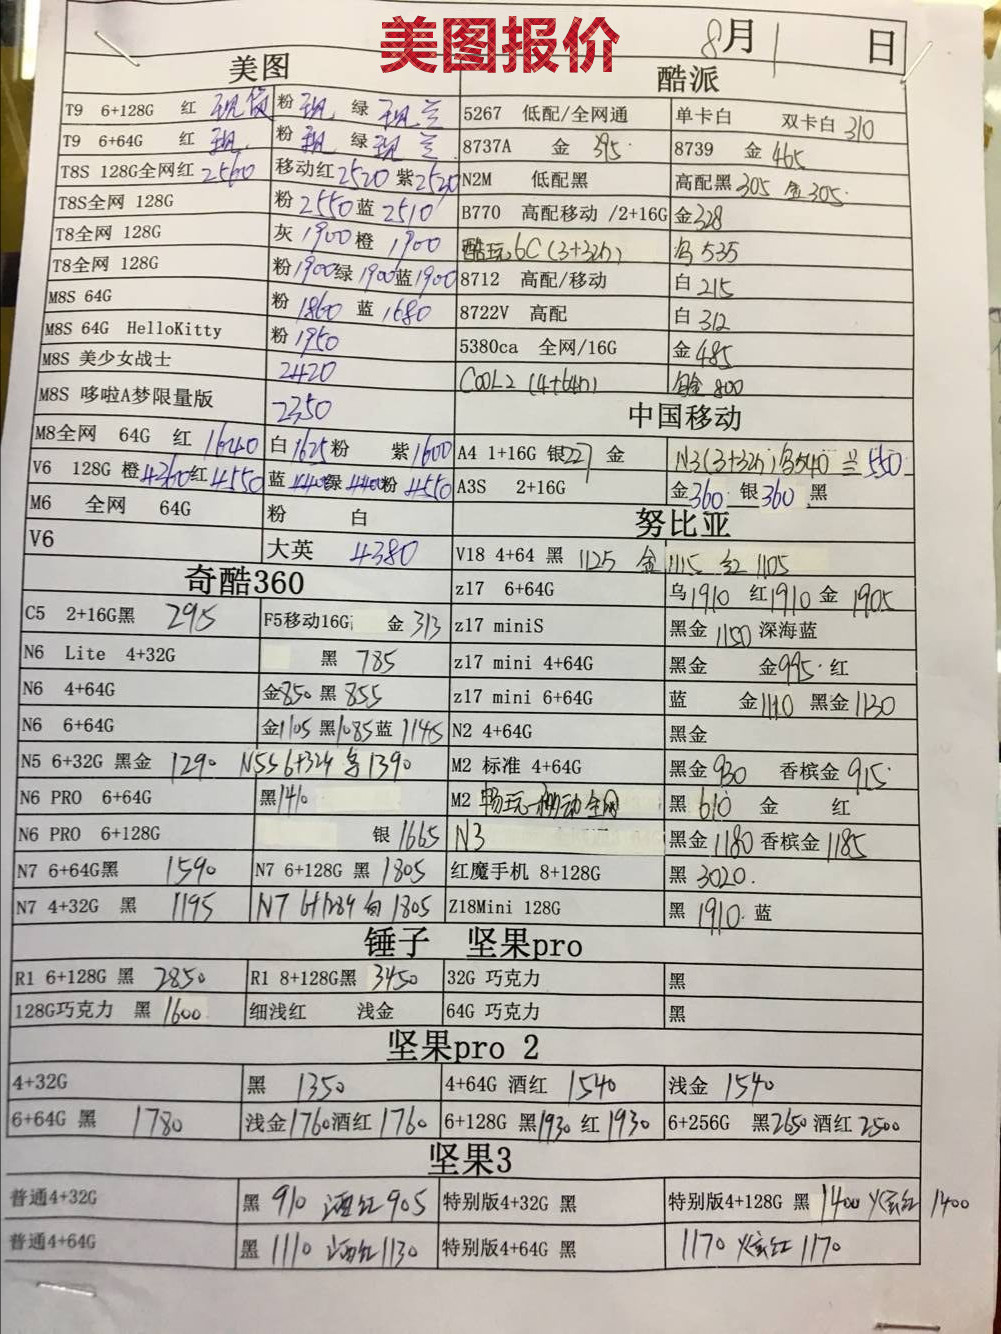 美图报价
8月1日
美图
酷派
T9 6+128G 红 现货 粉 现 绿 现 兰
5267 低配/全网通 单卡白 双卡白 310
T9 6+64G 红 现 粉 现 绿 现 兰
8737A 金 395 8739 金 465
T8S 128G全网红 2560 移动红 2520 紫 2520
N2M 低配黑 高配黑 305 金 305
T8S全网 128G 粉 2550 蓝 2510
B770 高配移动 /2+16G 金 328
T8全网 128G 灰 1900 橙 1900
酷玩6C (3+32h) 乌 535
T8全网 128G 粉 1900 绿 1900 蓝 1900
8712 高配/移动 白 215
M8S 64G 粉 1860 蓝 1680
8722V 高配 白 312
M8S 64G HelloKitty 粉 1950
5380ca 全网/16G 金 485
M8S 美少女战士 2420
COOL2 (4+64h) 800
M8S 哆啦A梦限量版 2350
中国移动
M8全网 64G 红 白 1625 粉 紫 1600
A4 1+16G 银 227 金 N3 (3+32h) 乌 540 兰 550
V6 128G 橙 4360 红 4550 蓝 4440 绿 4440 粉 4550
A3S 2+16G 金 360 银 360 黑
M6 全网 64G 粉 白
努比亚
V6 大英 4380
V18 4+64 黑 1125 金 1115 红 1105
奇酷360
z17 6+64G 乌 1910 红 1910 金 1905
C5 2+16G黑 295 F5移动16G 金 313
z17 miniS 黑金 1150 深海蓝
N6 Lite 4+32G 黑 785
z17 mini 4+64G 黑金 金 995 红
N6 4+64G 金 850 黑 855
z17 mini 6+64G 蓝 金 1110 黑金 1130
N6 6+64G 金 1105 黑 1085 蓝 1145
N2 4+64G 黑金
N5 6+32G 黑金 1290 N5S 6+32h 乌 1390
M2 标准 4+64G 黑金 930 香槟金 915
N6 PRO 6+64G 黑 1410
M2 畅玩-移动全网 黑 610 金 红
N6 PRO 6+128G 银 1665
N3 黑金 1180 香槟金 1185
N7 6+64G黑 1590 N7 6+128G 黑 1805
红魔手机 8+128G 黑 3020
N7 4+32G 黑 1195 N7 6+128h 白 1805
Z18Mini 128G 黑 1910 蓝
锤子 坚果pro
R1 6+128G 黑 2850 R1 8+128G黑 3450 32G 巧克力 黑
128G巧克力 黑 1600 细浅红 浅金 64G 巧克力 黑
坚果pro 2
4+32G 黑 1350 4+64G 酒红 1540 浅金 1540
6+64G 黑 1780 浅金 1760 酒红 1760 6+128G 黑 1930 红 1930 6+256G 黑 2650 酒红 2500
坚果3
普通4+32G 黑 910 酒红 905 特别版4+32G 黑 特别版4+128G 黑 1400 炫红 1400
普通4+64G 黑 1110 酒红 1130 特别版4+64G 黑 1170 炫红 1170